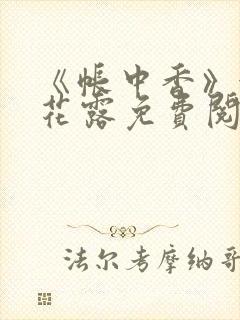 《帐中香》
花露免费阅
法尔考摩纳哥